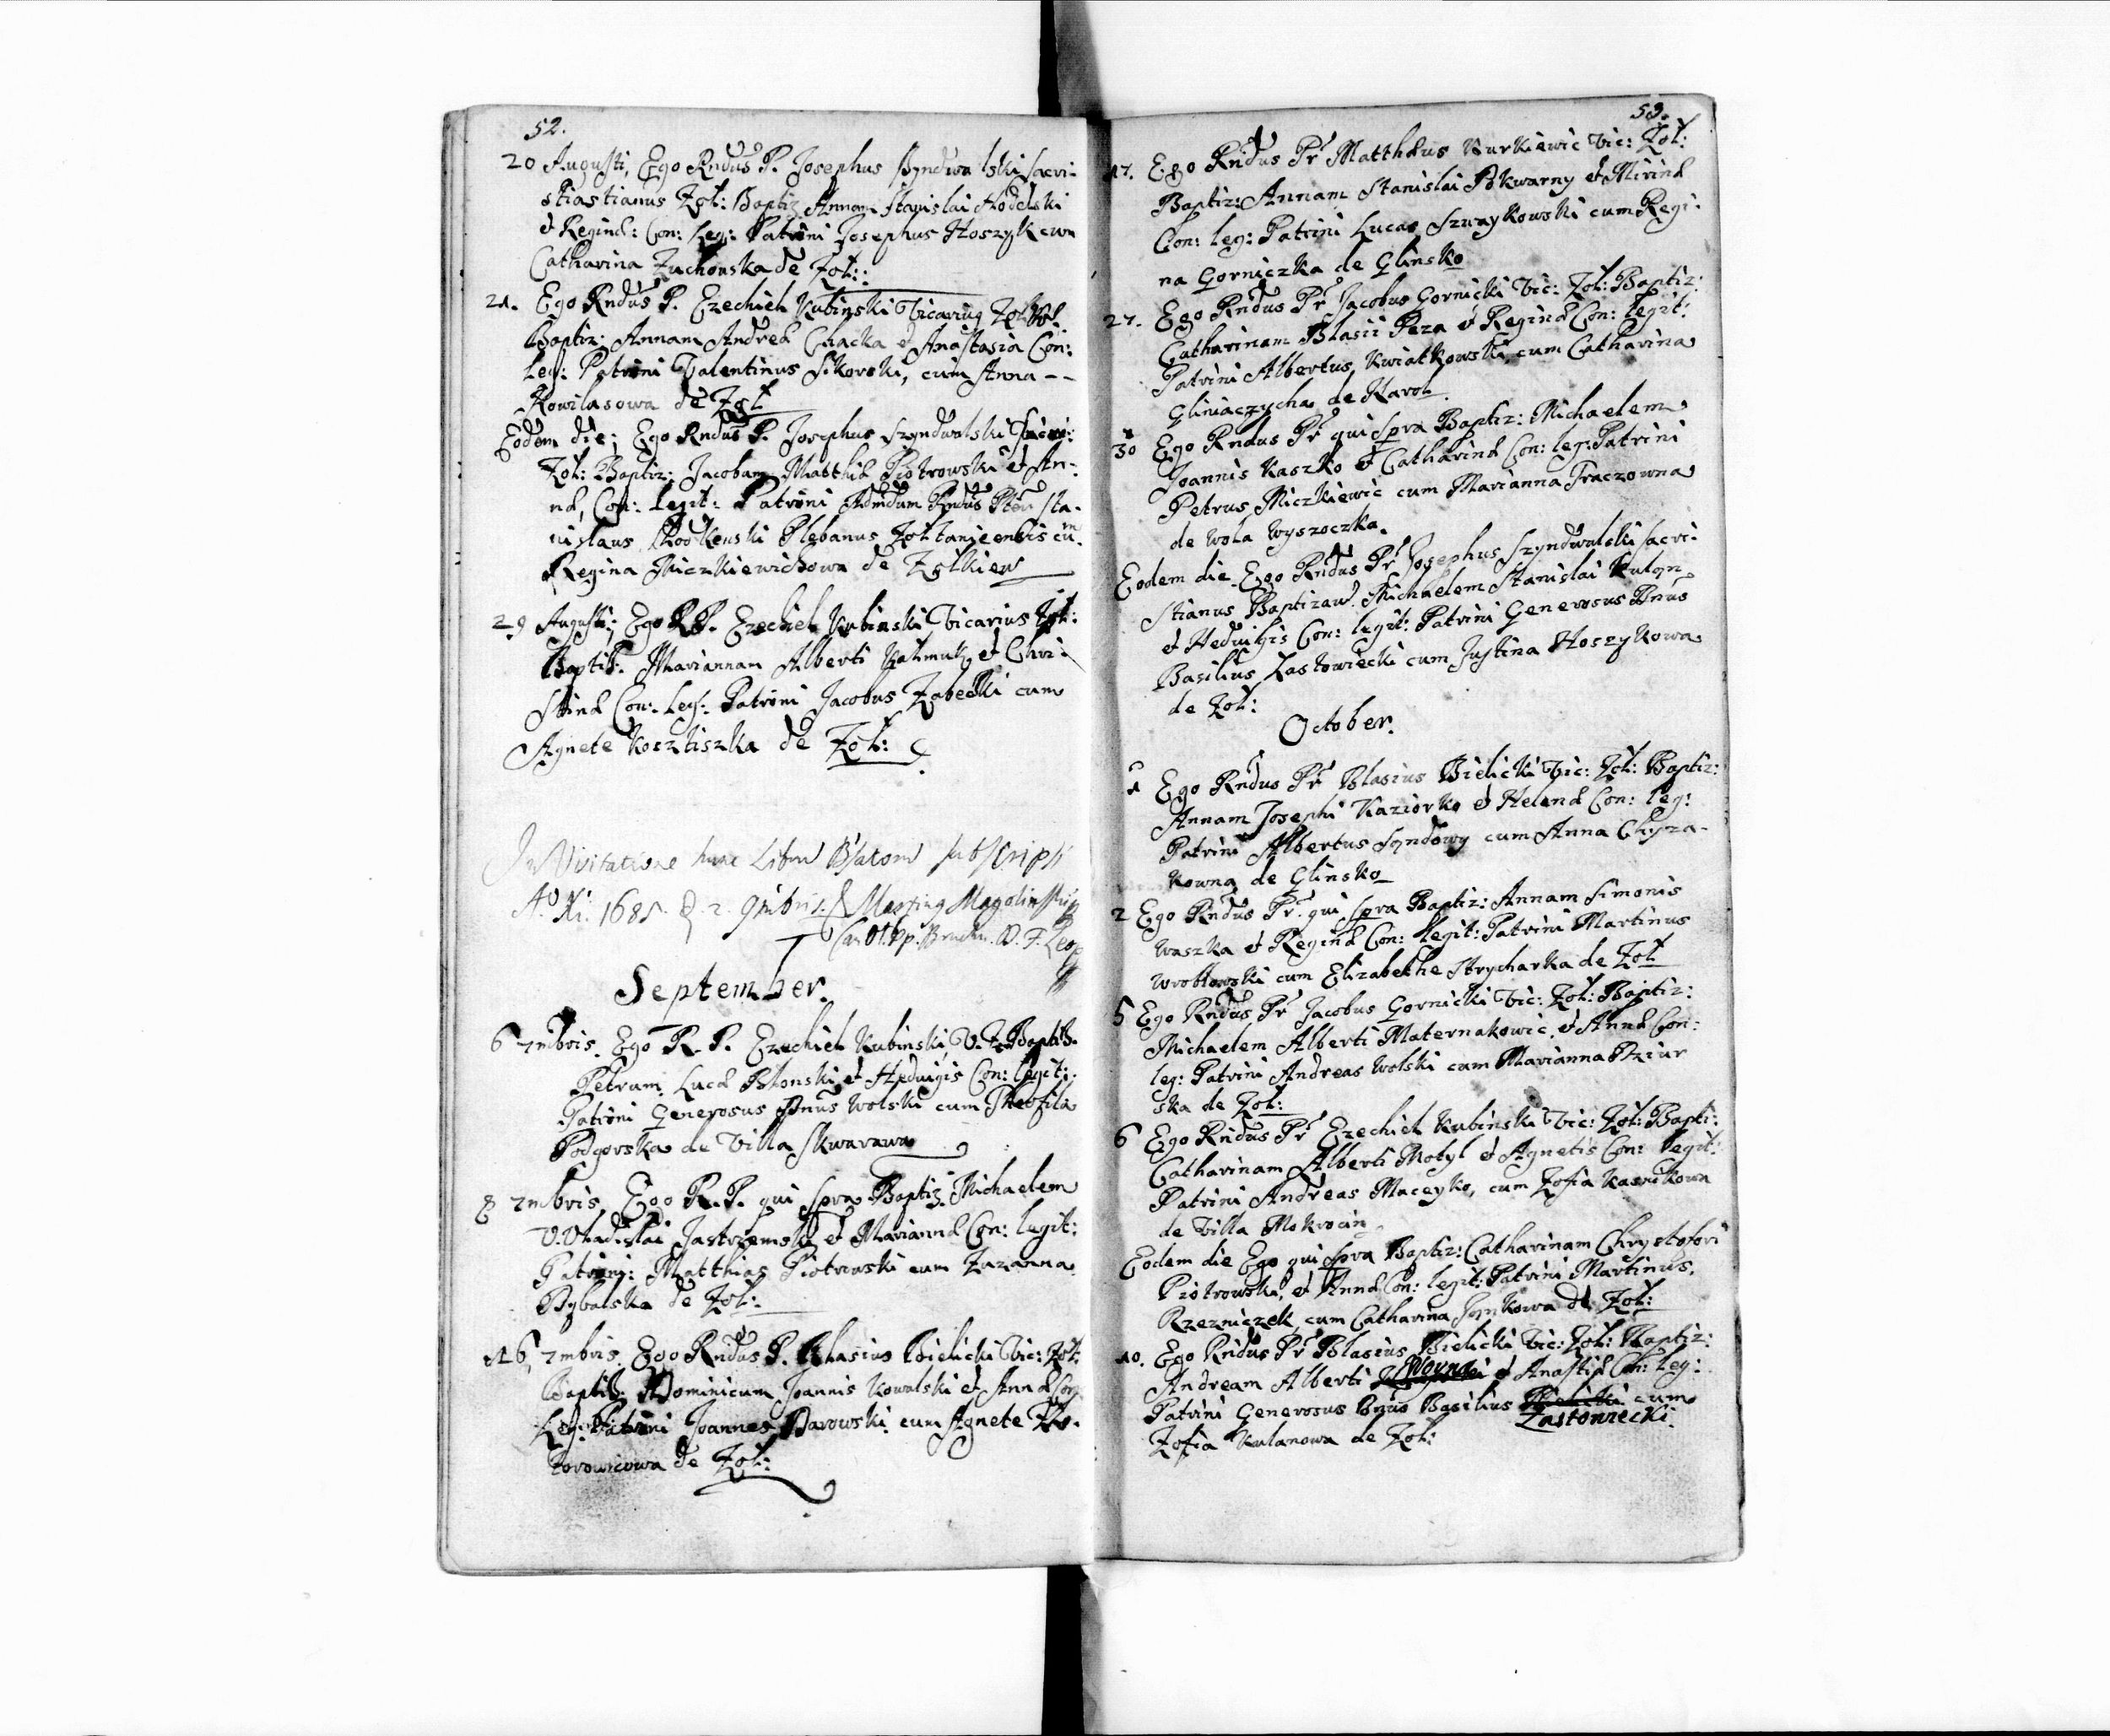 52.
20 Augusti, Ego Rndus P. Josephus Szyndwalski Sacri-
stiastianus Zol: Baptiz. Annam Stanislai
et Reginæ: Con: Leg: Patrini Josephus Hoszyk cum
Catharina Zuchowska de Zol::
21. Ego Rndus P. Ezechiel Kubinski Vicarius Zol:
Baptiz: Annam Andreæ Chacka et Anastasia Con:
Leg: Patrini Valentinus Sikorski, cum Anna --
Kowilasowa de Zol
Eodem die; Ego Rndus P. Josephus Szyndwalski Sacri:
Zol: Baptiz: Jacobum Matthiæ Piotrowski et An-
næ, Con: legit: Patrini Admdum Rndus Sta-
nislaus Plebanus Zoltancensis cum
Regina Miczkiewiczowa de Zolkiew
29 Augusti; Ego R P. Ezechiel Kubinski Vicarius Zol:
Baptiz: Mariannam Alberti Kalmuk et Chri-
stinæ Con: Leg: Patrini Jacobus Zabecki cum
Agnete Koszliszka de Zol:
In Visitatione hunc Librum subscripsi
Ao Xi: 1685. d. 2. 9mbris.
September.
6 7mbris. Ego R. P. Ezechiel Kubinski V. Z. Baptiz.
Petrum Lucæ Blonski et Hedvigis Con: legit:
Patrini Generosus Dnus Wolski cum Theofila
Podgorska de Villa Skwarawa
8 7mbris, Ego R. P. qui Spra Baptiz: Michaelem
Vladislai Jastrzemski et Mariannæ Con: legit:
Patrini: Matthias Piotrowski cum Zuzanna
Rybalska de Zol:
16, 7mbris. Ego Rndus P. Blasius Bielicki Vic: Zol:
Baptiz: Dominicum Joannis Kowalski et Annæ Con
Leg: Patrini Joannes Barowski cum Agnete
de Zol:
53.
17. Ego Rndus Pr Matthæus Kurkiewic Vic: Zol:
Baptiz: Annam Stanislai Pokwarny et
Con: leg: Patrini Lucas Szwaykowski cum Regi-
na Gorniczka de Glinsko
27. Ego Rndus Pr Jacobus Gornicki Vic: Zol: Baptiz:
Catharinam Blasii Peza et Reginæ Con: legit:
Patrini Albertus Kwiatkowski, cum Catharina
Gliniaczycha de Harol
30 Ego Rndus Pr qui Spra Baptiz: Michaelem
Joannis Kaszko et Catharinæ Con: leg: Patrini
Petrus Miczkiewic cum Marianna Traczowna
de Wola Wyszoczka.
Eodem die Ego Rndus Pr Josephus Szyndwalski Sacri-
stianus Baptizavi Michaelem Stanislai Kulan
et Hedvigis Con: legit: Patrini Generosus Dnus
Basilius Zastowiecki cum Justina Hoszykowa
de Zol:
October.
1 Ego Rndus Pr Blasius Bielicki Vic: Zol: Baptiz:
Annam Josephi Kaziorko et Helenæ Con: leg:
Patrini Albertus Syndowy cum Anna Chyza-
kowna de Glinsko
2 Ego Rndus Pr. qui Spra Baptiz: Annam Simonis
Waszka et Reginæ Con: legit: Patrini Martinus
Wroblowski cum Elizabethe Strycharka de Zol
5 Ego Rndus Pr Jacobus Gornicki Vic: Zol: Baptiz:
Michaelem Alberti Maternakowic, et Annæ Con:
leg: Patrini Andreas Wolski cum Marianna Dziur
ska de Zol:
6 Ego Rndus Pr Ezechiel Kubinski Vic: Zol: Bapti:
Catharinam Alberti Motyl et Agnetis Con: legit:
Patrini Andreas Maceyko, cum Zofia Kasnikowa
de Villa Mokrocin
Eodem die Ego qui Spra Baptiz: Catharinam Chrystofori
Piotrowski, et Annæ Con: legit: Patrini Martinus,
Rzezniczek, cum Catharina Synkowa de Zol:
10. Ego Rndus Pr Blasius Bielicki Vic: Zol: Baptiz:
Andream Alberti Woyna et Anastiæ Con: leg:
Patrini Generosus Dnus Basilius Bielicki cum
Zastowiecki.
Zofia Kulanowa de Zol: